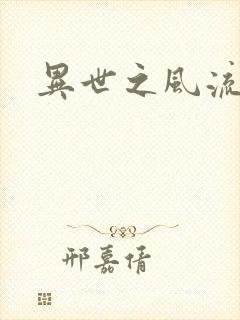 異世之風流
邢嘉倩